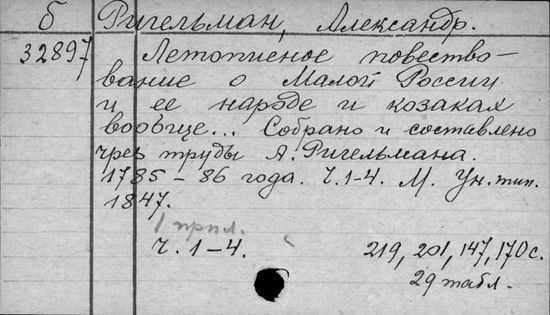 б Ригельман, Александр.
32897 Летописное повество-
вание о Малой России
и ее народе и козаках
вообще... Собрано и составлено
чрез труды А. Ригельмана.
1785-86 года. Ч. 1-4. М. Ун. тип.
1847.
1 прпл.
Ч. 1-4. 219, 201, 147, 170 с.
29 табл.